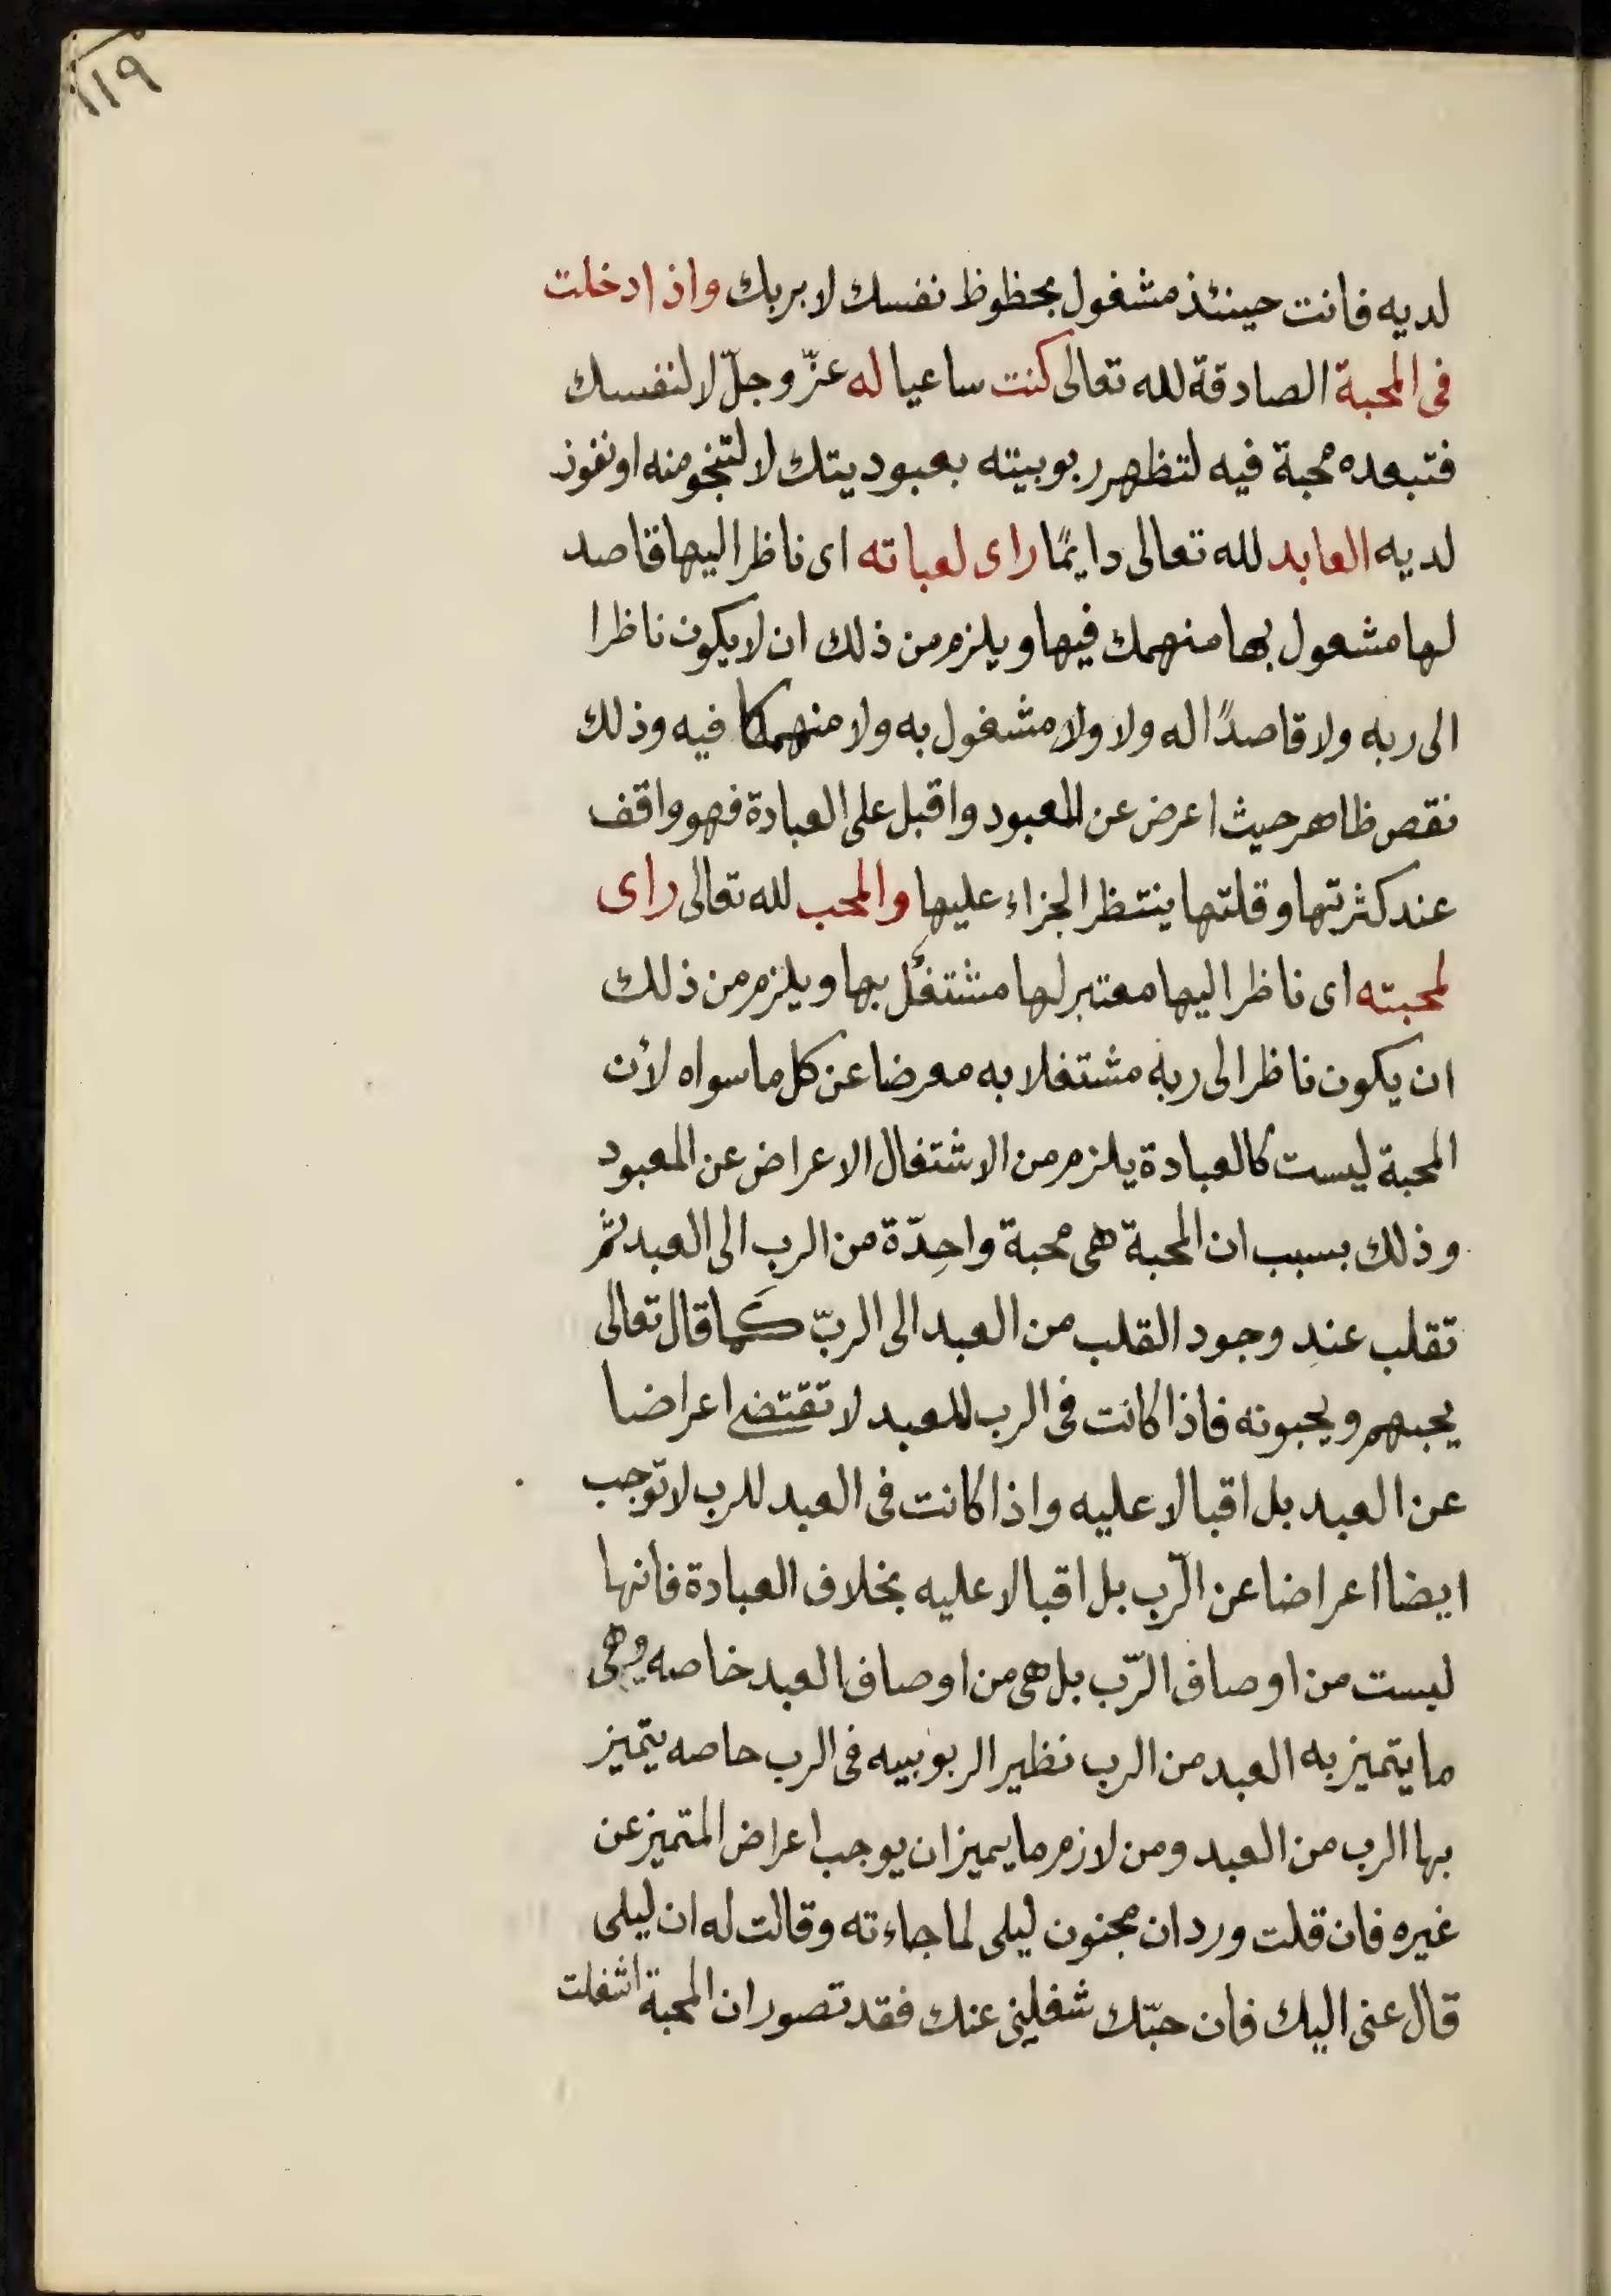 ١١٩
لديه فانت حينئذ مشغول بحظوظ نفسك لا بربك واذا دخلت
فى المحبة الصادقة لله تعالى كنت ساعيا له عزّ وجلّ لا لنفسك
فتبعده محبة فيه لتظهر ربوبيته بعبوديتك لا لتنجو منه او نفوز
لديه العابد لله تعالى دايمًا راى لعباته اى ناظر اليها قاصد
لها مشعول بها منهمك فيها ويلزم من ذلك ان لا يكون ناظرا
الى ربه ولا قاصدًا له ولا ولا مشغول به ولا منهمكا فيه وذلك
نقص ظاهر حيث اعرض عن المعبود واقبل على العبادة فهو واقف
عند كثرتها وقلتها ينتظر الجزاء عليها والمحب لله تعالى راى
لمحبته اى ناظر اليها معتبر لها مشتغل بها ويلزم من ذلك
ان يكون ناظرا الى ربه مشتغلا به معرضا عن كل ما سواه لأن
المحبة ليست كالعبادة يلزم من الاشتغال الاعراض عن المعبود
وذلك بسبب ان المحبة هى محبة واحِدّة من الرب الى العبد ثم
تقلب عند وجود القلب من العبد الى الربّ كما قال تعالى
يحبهم ويحبونه فاذا كانت فى الرب للعبد لا تقتضى اعراضا
عن العبد بل اقبالا عليه واذا كانت فى العبد للرب لا توجب
ايضا اعراضا عن الرّب بل اقبالا عليه بخلاف العبادة فانها
ليست من اوصاف الرّب بل هى من اوصاف العبد خاصه وهى
ما يتميز به العبد من الرب نظير الربوبيه فى الرب حاصه يتميز
بها الرب من العبد ومن لازم ما يميز ان يوجب اعراض المتميز عن
غيره فان قلت ورد ان مجنون ليلى لما جاءته وقالت له ان ليلى
قال عنى اليك فان حبّك شغلينى عنك فقد تصور ان المحبة اشغلت